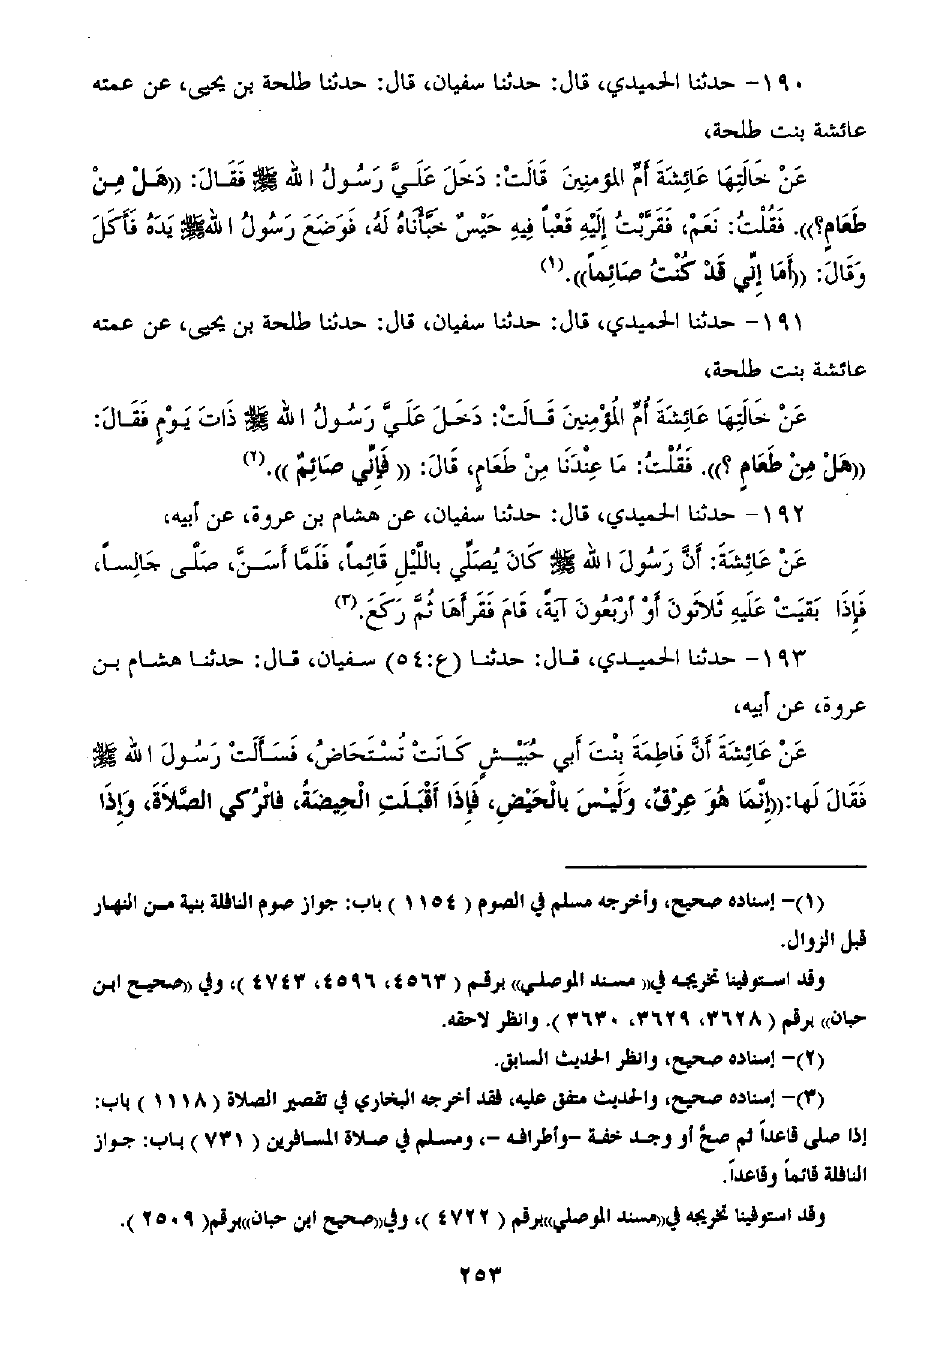 ١٩٠- حدثنا الحميدي، قال: حدثنا سفيان، قال: حدثنا طلحة بن يحيى، عن عمته
عائشة بنت طلحة،
عَنْ خَالَتِهَا عَائِشَةَ أُمِّ المُؤمِنِينَ قَالَتْ: دَخَلَ عَلَيَّ رَسُولُ الله ﷺ فَقَالَ: ((هَلْ مِنْ
طَعَامٍ؟)). فَقُلْتُ: نَعَمْ، فَقَرَّبْتُ إِلَيْهِ قَعْباً فِيهِ حَيْسٌ خَبَّأْنَاهُ لَهُ، فَوَضَعَ رَسُولُ اللهﷺ يَدَهُ فَأَكَلَ
وَقَالَ: ((أَمَا إِنِّي قَدْ كُنْتُ صَائِماً)).(١)
١٩١- حدثنا الحميدي، قال: حدثنا سفيان، قال: حدثنا طلحة بن يحيى، عن عمته
عائشة بنت طلحة،
عَنْ خَالَتِهَا عَائِشَةَ أُمِّ الْمُؤْمِنِينَ قَالَتْ: دَخَلَ عَلَيَّ رَسُولُ الله ﷺ ذَاتَ يَوْمٍ فَقَالَ:
((هَلْ مِنْ طَعَامٍ ؟)). فَقُلْتُ: مَا عِنْدَنَا مِنْ طَعَامٍ، قَالَ: (( فَإِنِّي صَائِمٌ )).(٢)
١٩٢- حدثنا الحميدي، قال: حدثنا سفيان، عن هشام بن عروة، عن أبيه،
عَنْ عَائِشَةَ: أَنَّ رَسُولَ الله ﷺ كَانَ يُصَلِّي بِاللَّيْلِ قَائِماً، فَلَمَّا أَسَنَّ، صَلَّى جَالِساً،
فَإِذَا بَقِيَتْ عَلَيهِ ثَلاَثُونَ أَوْ أَرْبَعُونَ آيَةً، قَامَ فَقَرأَهَا ثُمَّ رَكَعَ.(٣)
١٩٣- حدثنا الحميدي، قال: حدثنا (ع:٥٤) سفيان، قال: حدثنا هشام بن
عروة، عن أبيه،
عَنْ عَائِشَةَ أَنَّ فَاطِمَةَ بِنْتَ أبي حُبَيْشٍ كَانَتْ تُسْتَحَاضُ، فَسَأَلَتْ رَسُولَ الله ﷺ
فَقَالَ لَها:((إِنَّمَا هُوَ عِرْقٌ، وَلَيْسَ بِالْحَيْضِ، فَإِذَا أَقْبَلَتِ الْحِيضَةُ، فاتْرُكي الصَّلاَةَ، وَإِذَا
(١)- إسناده صحيح، وأخرجه مسلم في الصوم ( ١١٥٤ ) باب: جواز صوم النافلة بنية من النهار
قبل الزوال.
وقد استوفينا تخريجه في(( مسند الموصلي)) برقم ( ٤٥٦٣، ٤٥٩٦، ٤٧٤٣ )، وفي ((صحيح ابن
حبان)) برقم ( ٣٦٢٨، ٣٦٢٩، ٣٦٣٠ ). وانظر لاحقه.
(٢)- إسناده صحيح، وانظر الحديث السابق.
(٣)- إسناده صحيح، والحديث متفق عليه، فقد أخرجه البخاري في تقصير الصلاة ( ١١١٨ ) باب:
إذا صلى قاعداً ثم صحَّ أو وجد خفة -وأطرافه -، ومسلم في صلاة المسافرين ( ٧٣١ ) باب: جواز
النافلة قائماً وقاعداً.
وقد استوفينا تخريجه في((مسند الموصلي))برقم ( ٤٧٢٢ )، وفي((صحيح ابن حبان))برقم( ٢٥٠٩ ).
٢٥٣